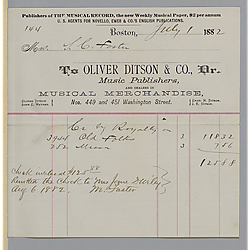 Publishers of THE MUSICAL RECORD, the new Weekly Musical Paper, $2 per annum
U. S. AGENTS FOR NOVELLO, EWER & CO'S ENGLISH PUBLICATIONS.
144 Boston, July 1 1882
Mrs. S. C. Foster
To OLIVER DITSON & CO., Dr.
Music Publishers,
AND DEALERS IN
MUSICAL MERCHANDISE,
Nos. 449 and 451 Washington Street.
Cr by Royalty on
3944 Old Folk 3 118 32
252 3 7 56
125 88
$125 88
the Check to Mrs Jane
Aug 6. 1882 M. Foster